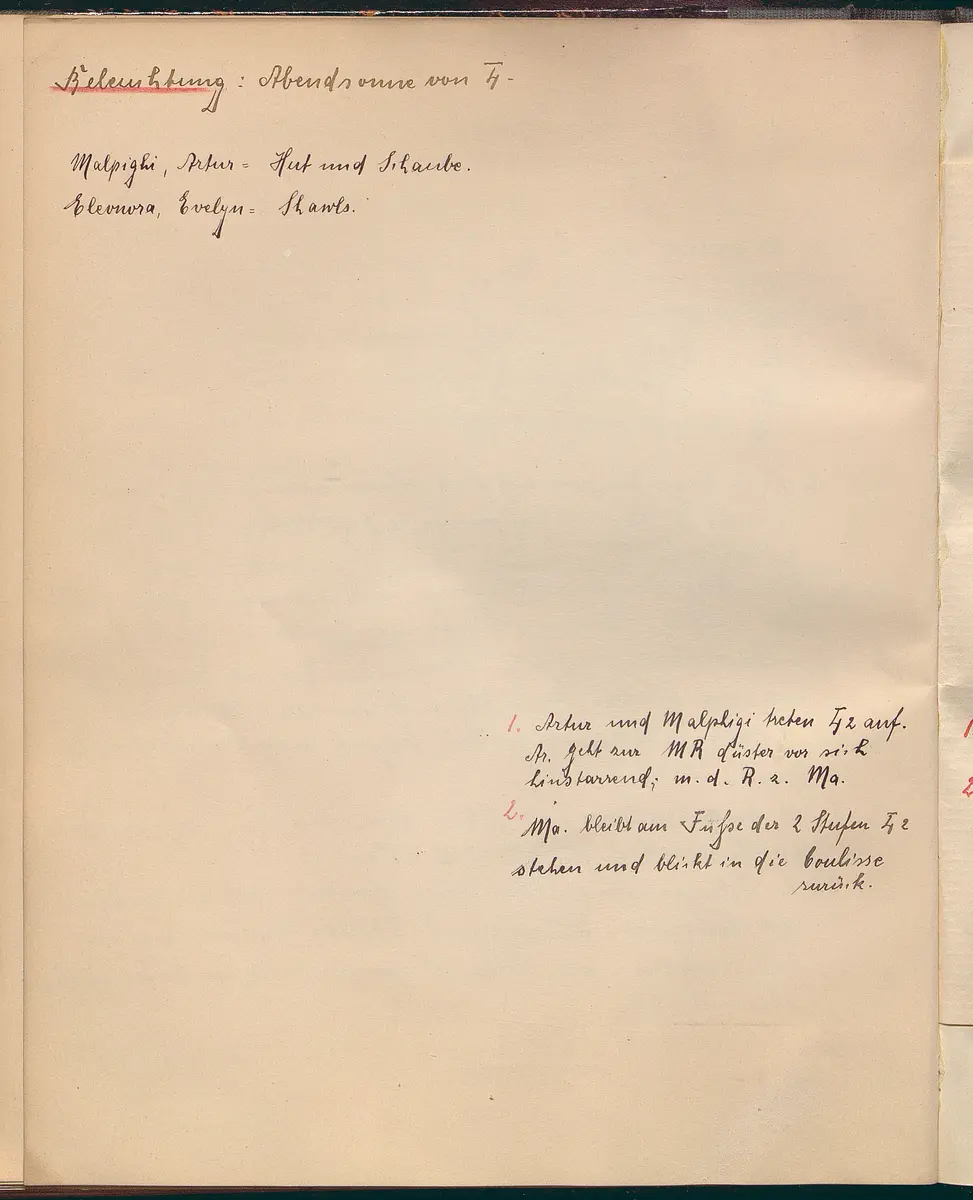 Beleuchtung: Abendsonne von L-
Malpighi, Artur = Hut und Schaube.
Eleonora, Evelyn = Shawls.
1. Artur und Malphigi treten L2 auf.
Ar. geht zur MR düster vor sich
hinstarrend; m. d. R. z. Ma.
2. Ma. bleibt am Fuße der 2 Stufen L2
stehen und blickt in die Coulisse
zurück.
1
2